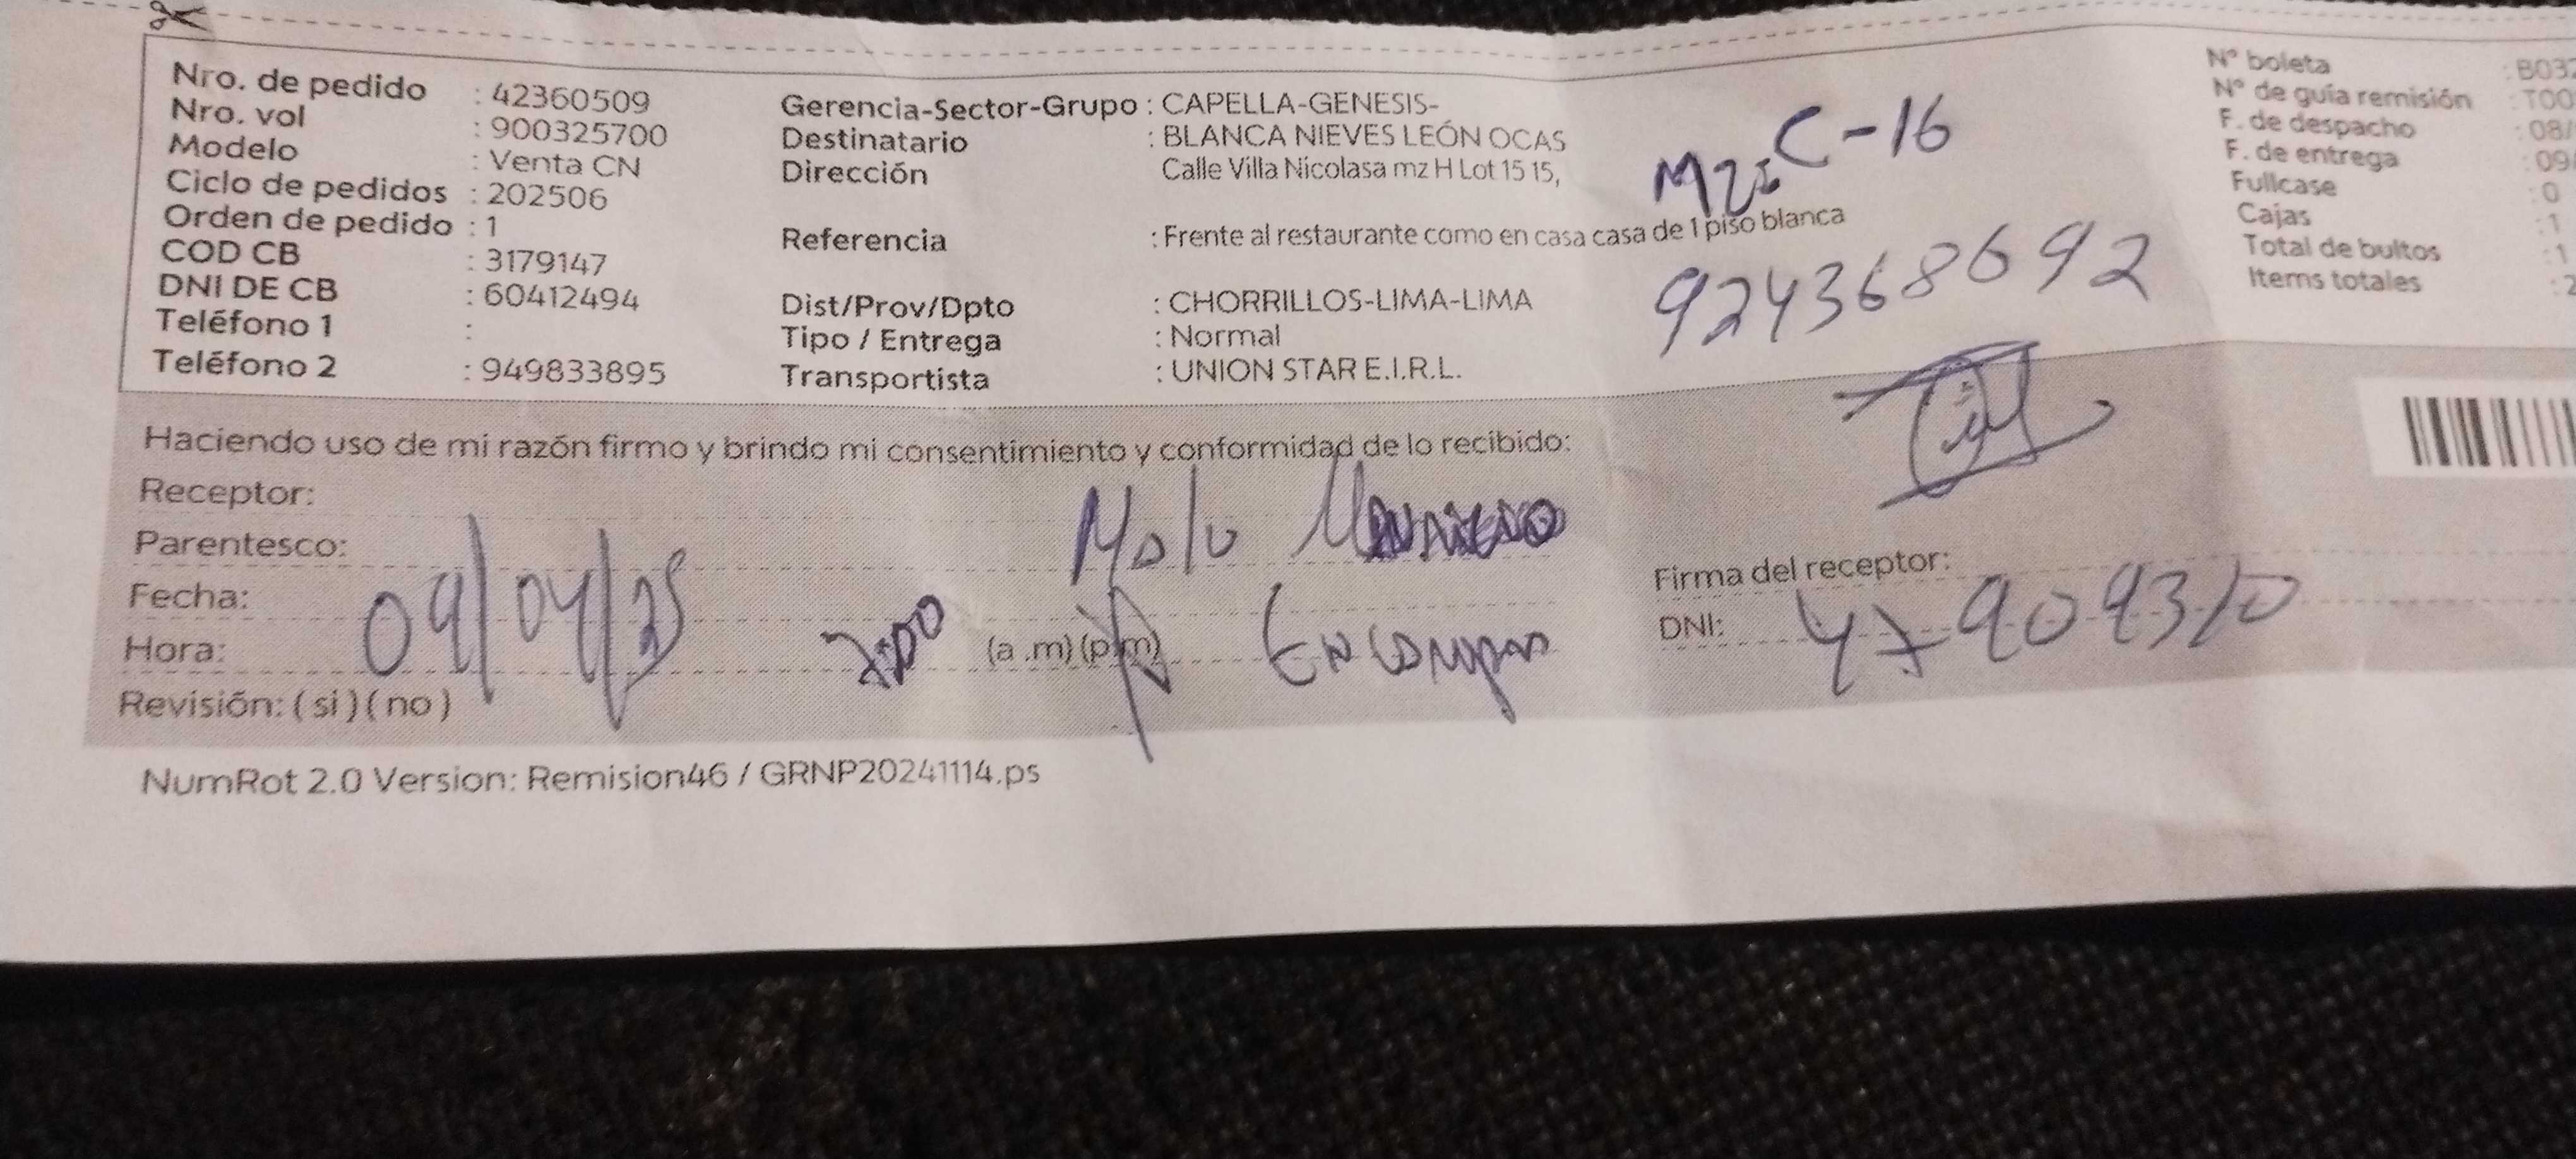 Nro. de pedido : 42360509
Nro. vol : 900325700
Modelo : Venta CN
Ciclo de pedidos : 202506
Orden de pedido : 1
COD CB : 3179147
DNI DE CB : 60412494
Teléfono 1 :
Teléfono 2 : 949833895
Gerencia-Sector-Grupo : CAPELLA-GENESIS-
Destinatario : BLANCA NIEVES LEÓN OCAS
Dirección Calle Villa Nicolasa mz H Lot 15 15,
Referencia : Frente al restaurante como en casa casa de 1 piso blanca
Dist/Prov/Dpto : CHORRILLOS-LIMA-LIMA
Tipo / Entrega : Normal
Transportista : UNION STAR E.I.R.L.
Mz: C-16
924368692
N° boleta : B032
N° de guía remisión : T00
F. de despacho : 08/
F. de entrega : 09/
Fullcase : 0
Cajas : 1
Total de bultos : 1
Items totales : 2
Haciendo uso de mi razón firmo y brindo mi consentimiento y conformidad de lo recibido:
Receptor:
Parentesco:
Fecha: 09/04/25
Hora: (a .m) (p.m)
Revisión: ( si ) ( no )
Firma del receptor:
DNI: 47909310
NumRot 2.0 Version: Remision46 / GRNP20241114.ps